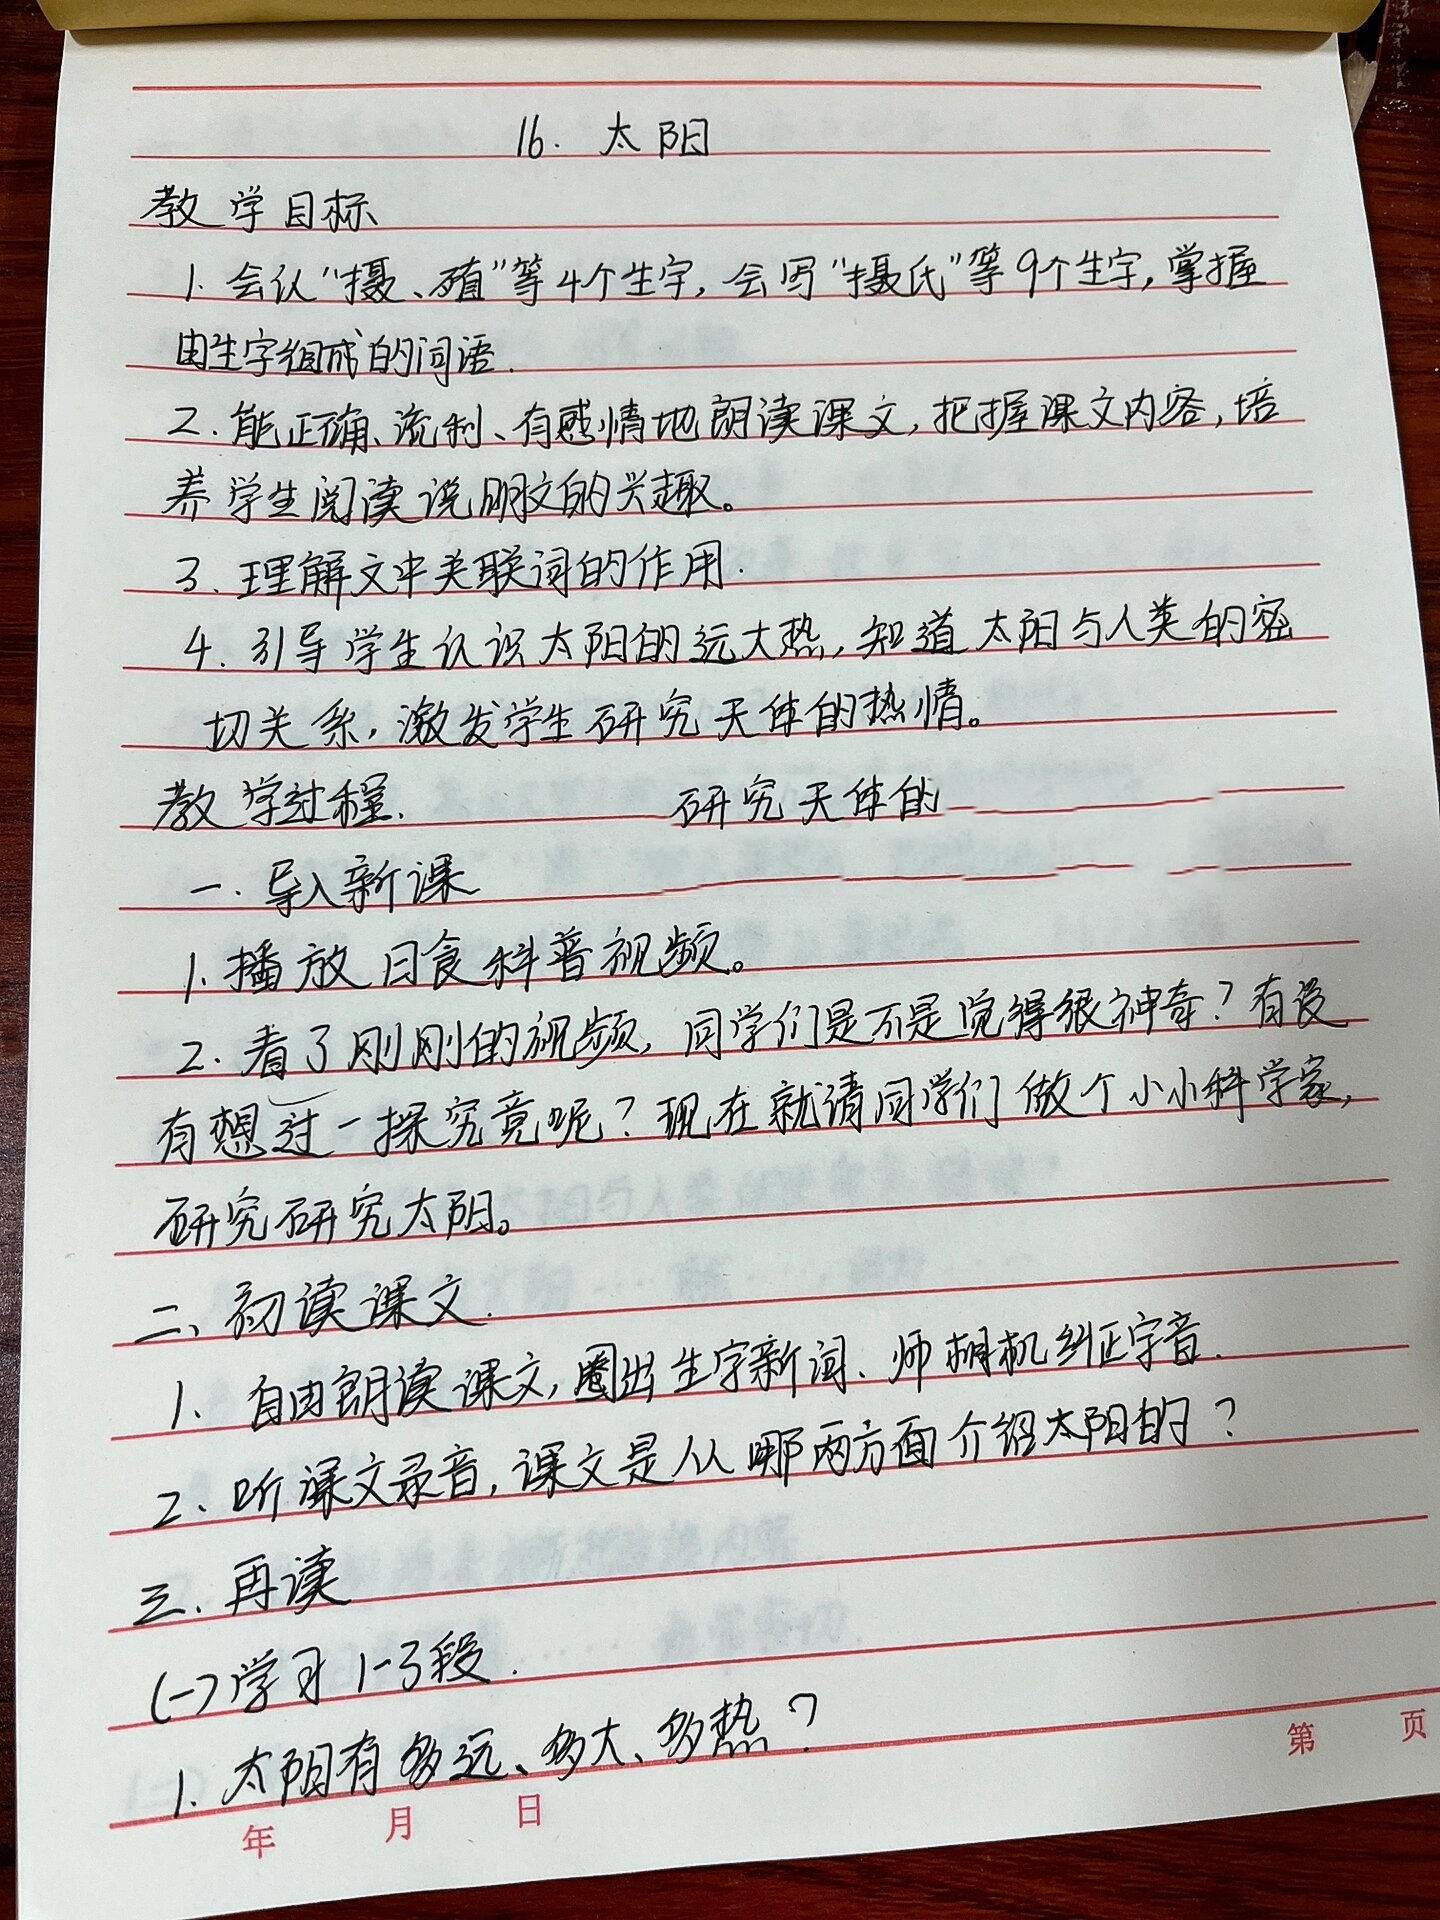 16. 太阳
教学目标
1. 会认“摄、殖”等4个生字，会写“摄氏”等9个生字，掌握
由生字组成的词语.
2. 能正确、流利、有感情地朗读课文，把握课文内容，培
养学生阅读说明文的兴趣。
3. 理解文中关联词的作用.
4. 引导学生认识太阳的远大热，知道太阳与人类的密
切关系，激发学生研究天体的热情。
教学过程. 研究天体的
一. 导入新课
1. 播放日食科普视频。
2. 看了刚刚的视频，同学们是不是觉得很神奇？有没
有想过一探究竟呢？现在就请同学们做个小小科学家，
研究研究太阳。
二、初读课文.
1、自由朗读课文，圈出生字新词、师相机纠正字音.
2、听课文录音，课文是从哪两方面介绍太阳的？
三、再读
(一)学习1-3段.
1. 太阳有多远、多大、多热？
年 月 日 第 页